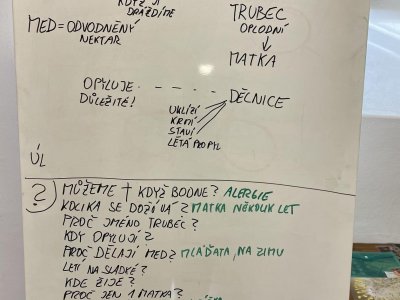 KDYŽ JI
DRÁŽDÍME
TRUBEC
OPLODNÍ
MATKA
MED = ODVODNĚNÝ
NEKTAR
OPYLUJE
DŮLEŽITÉ!
DĚLNICE
UKLÍZÍ
KRMÍ
STAVÍ
LÉTÁ PRO PYL
ÚL
? MŮŽEME † KDYŽ BODNE? ALERGIE
KOLIKA SE DOŽÍVÁ? MATKA NĚKOLIK LET
PROČ JMÉNO TRUBEC?
KDY OPYLUJÍ?
PROČ DĚLAJÍ MED? MLÁĎATA, NA ZIMU
LETÍ NA SLADKÉ?
KDE ŽIJE?
PROČ JEN 1 MATKA?